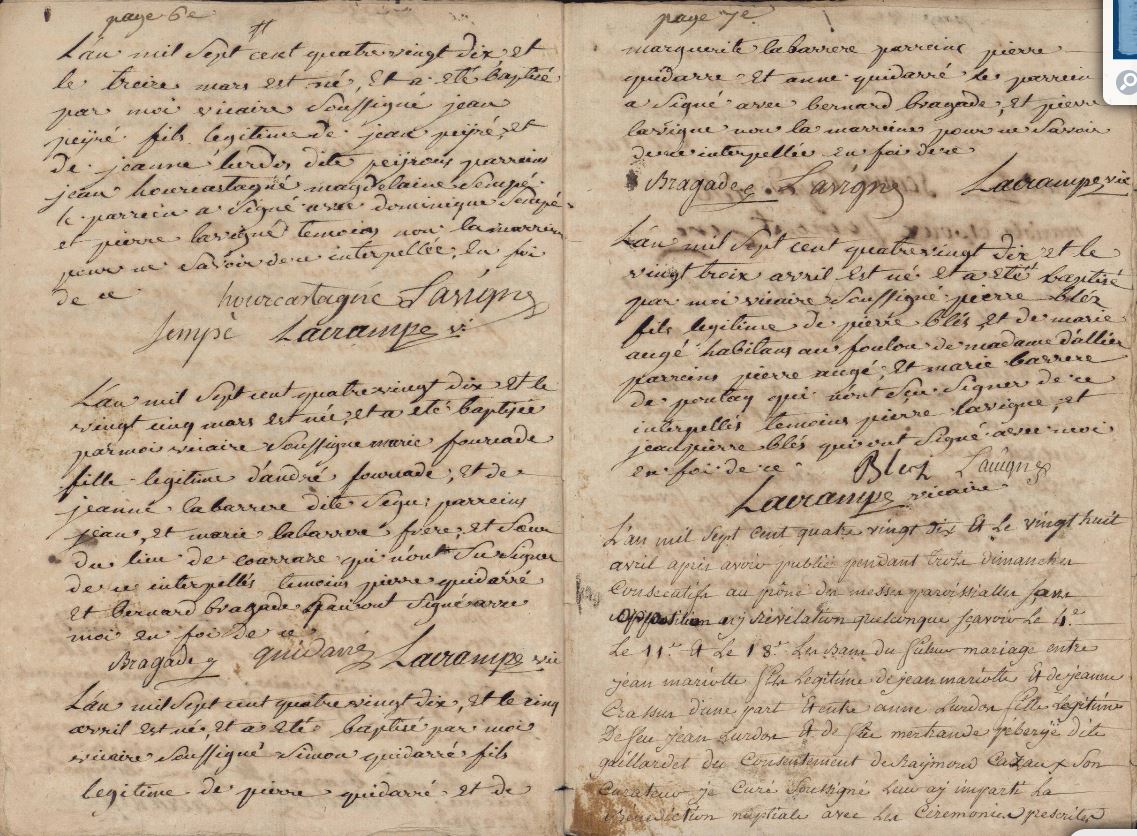 page 6e
L'an mil sept cent quatre vingt dix et
le treize mars est né, et a eté baptisé
par moi vicaire soussigné jean
peÿré fils legitime de jean peÿré, et
de jeanne lurdos dite peÿrous parreins
jean hourcastagné magdelaine sempé
le parrein a signé avec dominique sempé
et pierre lavigne temoins non la marreine
pour ne savoir de ce interpellée, en foi
de ce hourcastagné Lavigne
Sempé Lacrampe vi
L'an mil sept cent quatre vingt dix et le
vingt cinq mars est née, et a eté baptisée
par moi vicaire soussigné marie fourcade
fille legitime d'andré fourcade, et de
jeanne labarrere dite parreins
jean, et marie labarrere frere, et soeur
du lieu de coarraze qui n'ont su signer
de ce interpellés temoins pierre guidarré
et bernard bragade qui ont signé avec
moi en foi de ce
Bragade guidarré Lacrampe vic
L'an mil sept cent quatre vingt dix, et le cinq
avril est né, et a eté baptisé par moi
vicaire soussigné simon guidarré fils
legitime de pierre guidarré et de
page 7e
marguerite labarrere parreins pierre
guidarre et anne guidarré le parrein
a signé avec bernard bragade, et pierre
lavigne non la marreine pour ne savoir
de ce interpellée en foi de ce
Bragade Lavigne Lacrampe vic
L'an mil sept cent quatre vingt dix et le
vingt troix avril est né et a eté baptisé
par moi vicaire soussigné pierre bles
fils legitime de pierre blés et de marie
augé habitans au foulon de madame d'allier
parreins pierre augé, et marie barrere
de pontaq qui n'ont sçu signer de ce
interpellés temoins pierre lavigne, et
jean pierre blés qui ont signé avec moi
en foi de ce Blez Lavigne
Lacrampe vicaire
L'an mil sept cent quatre vingt dix et le vingt huit
avril apres avoir publié pendant trois dimanches
consecutifs au prone des messes paroissialles sans
opposition ny revelation quelconque sçavoir le 4e
le 11e et le 18e les bans du futur mariage entre
jean mariotte fils legitime de jean mariotte et de jeanne
d'une part et entre anne Lurdos fille legitime
de feu jean Lurdos et de feu merthande dite
guillardet du consentement de Raymond Cazaux son
curateur je curé soussigné leur ay imparti la
benediction nuptiale avec les ceremonies prescrites